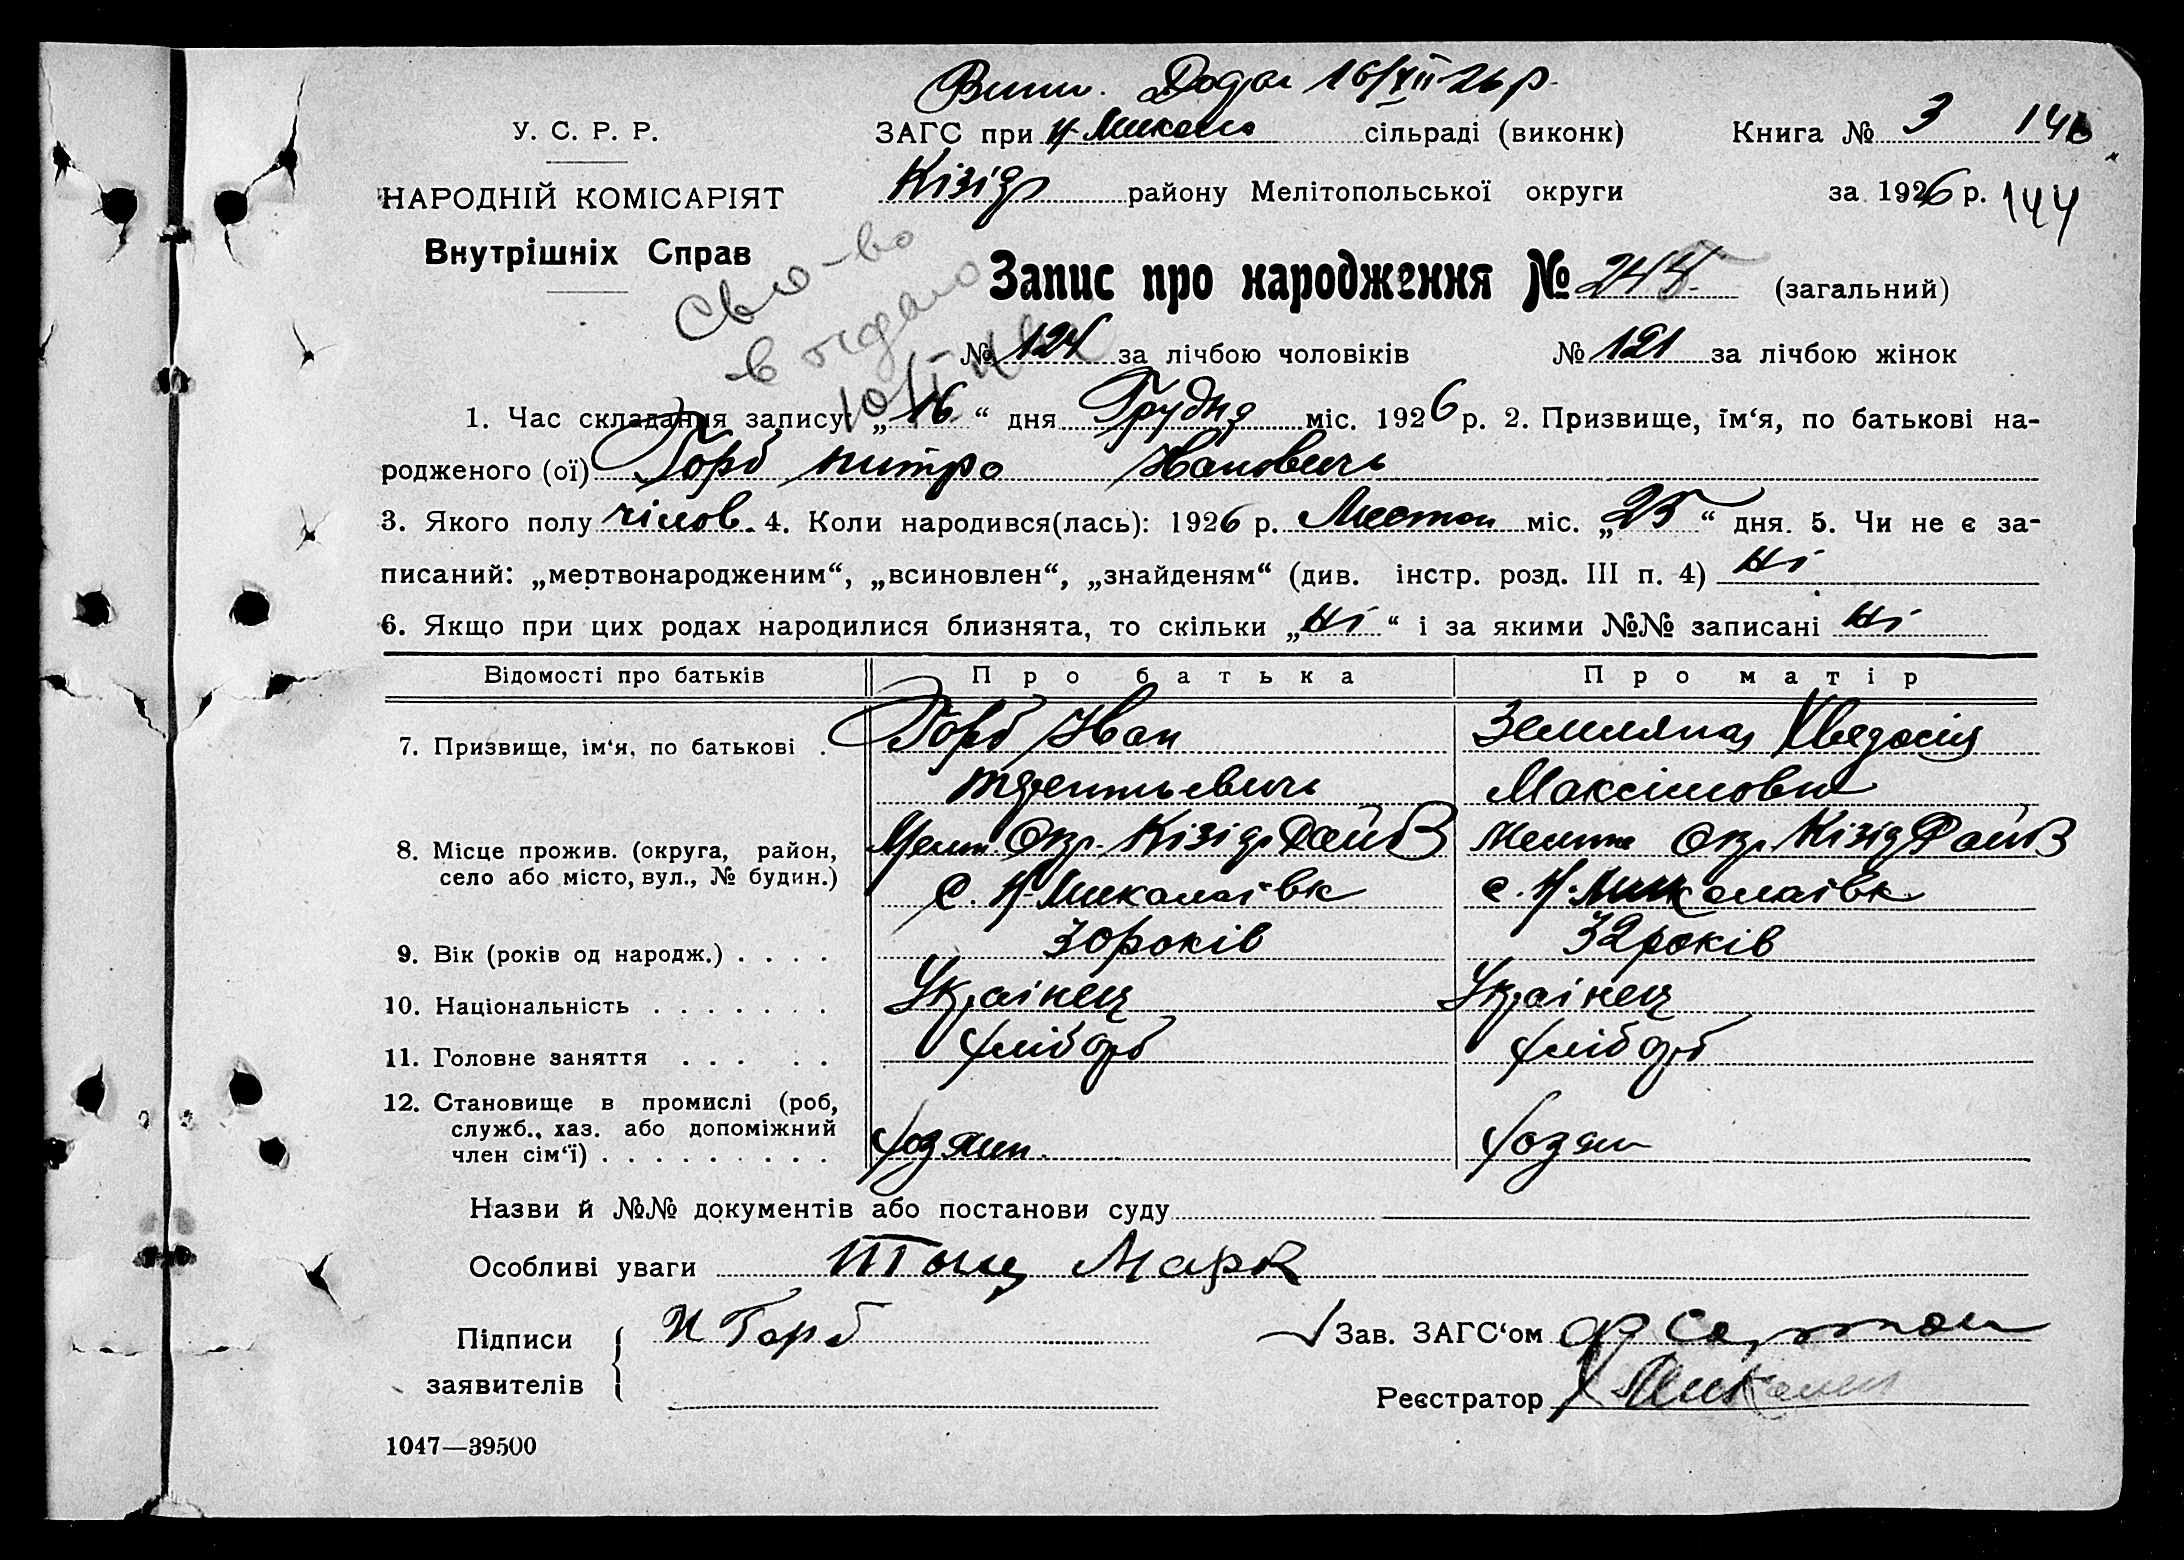 Вит. Дода 16/XII 26 р.
У. С. Р. Р.
ЗАГС при Н-Микола сільраді (виконк)
Книга № 3 146
НАРОДНІЙ КОМІСАРІЯТ
Кізіяр району Мелітопольської округи
за 1926 р. 144
Внутрішніх Справ
Свід-во
видано
Запис про народження № 245 (загальний)
№ 124 за лічбою чоловіків № 121 за лічбою жінок
1. Час складання запису: „16“ дня Грудня міс. 1926 р. 2. Призвище, їм‘я, по батькові на-
родженого (ої) Горб митро Иванович
3. Якого полу чілов. 4. Коли народився(лась): 1926 р. Листоп міс. „25“ дня. 5. Чи не є за-
писаний: „мертвонародженим“, „всиновлен“, „знайденям“ (див. інстр. розд. III п. 4) Ні
6. Якщо при цих родах народилися близнята, то скільки „Ні“ і за якими №№ записані Ні
Відомості про батьків Про батька Про матір
7. Призвище, ім‘я, по батькові . Горб Иван Землянa Хведосія
терентьевич Максимовн
8. Місце прожив. (округа, район, Мелит. Окр. Кізіяр Район Мелит Окр. Кізіяр Район
село або місто, вул., № будин.) с. Н-Миколаівк с. Н-Миколаівк
9. Вік (років од народж.) . . . . 30 років 32 років
10. Національність . . . . . . . Украінец Украінец
11. Головне заняття . . . . . хліборб хліборб
12. Становище в промислі (роб,
служб., хаз. або допоміжний
член сім‘ї) . . . . . . . . . хозяин. хозяи
Назви й №№ документів або постанови суду
Особливі уваги Марк
Підписи И Горб
Зав. ЗАГС‘ом
заявителів
Реєстратор
1047—39500